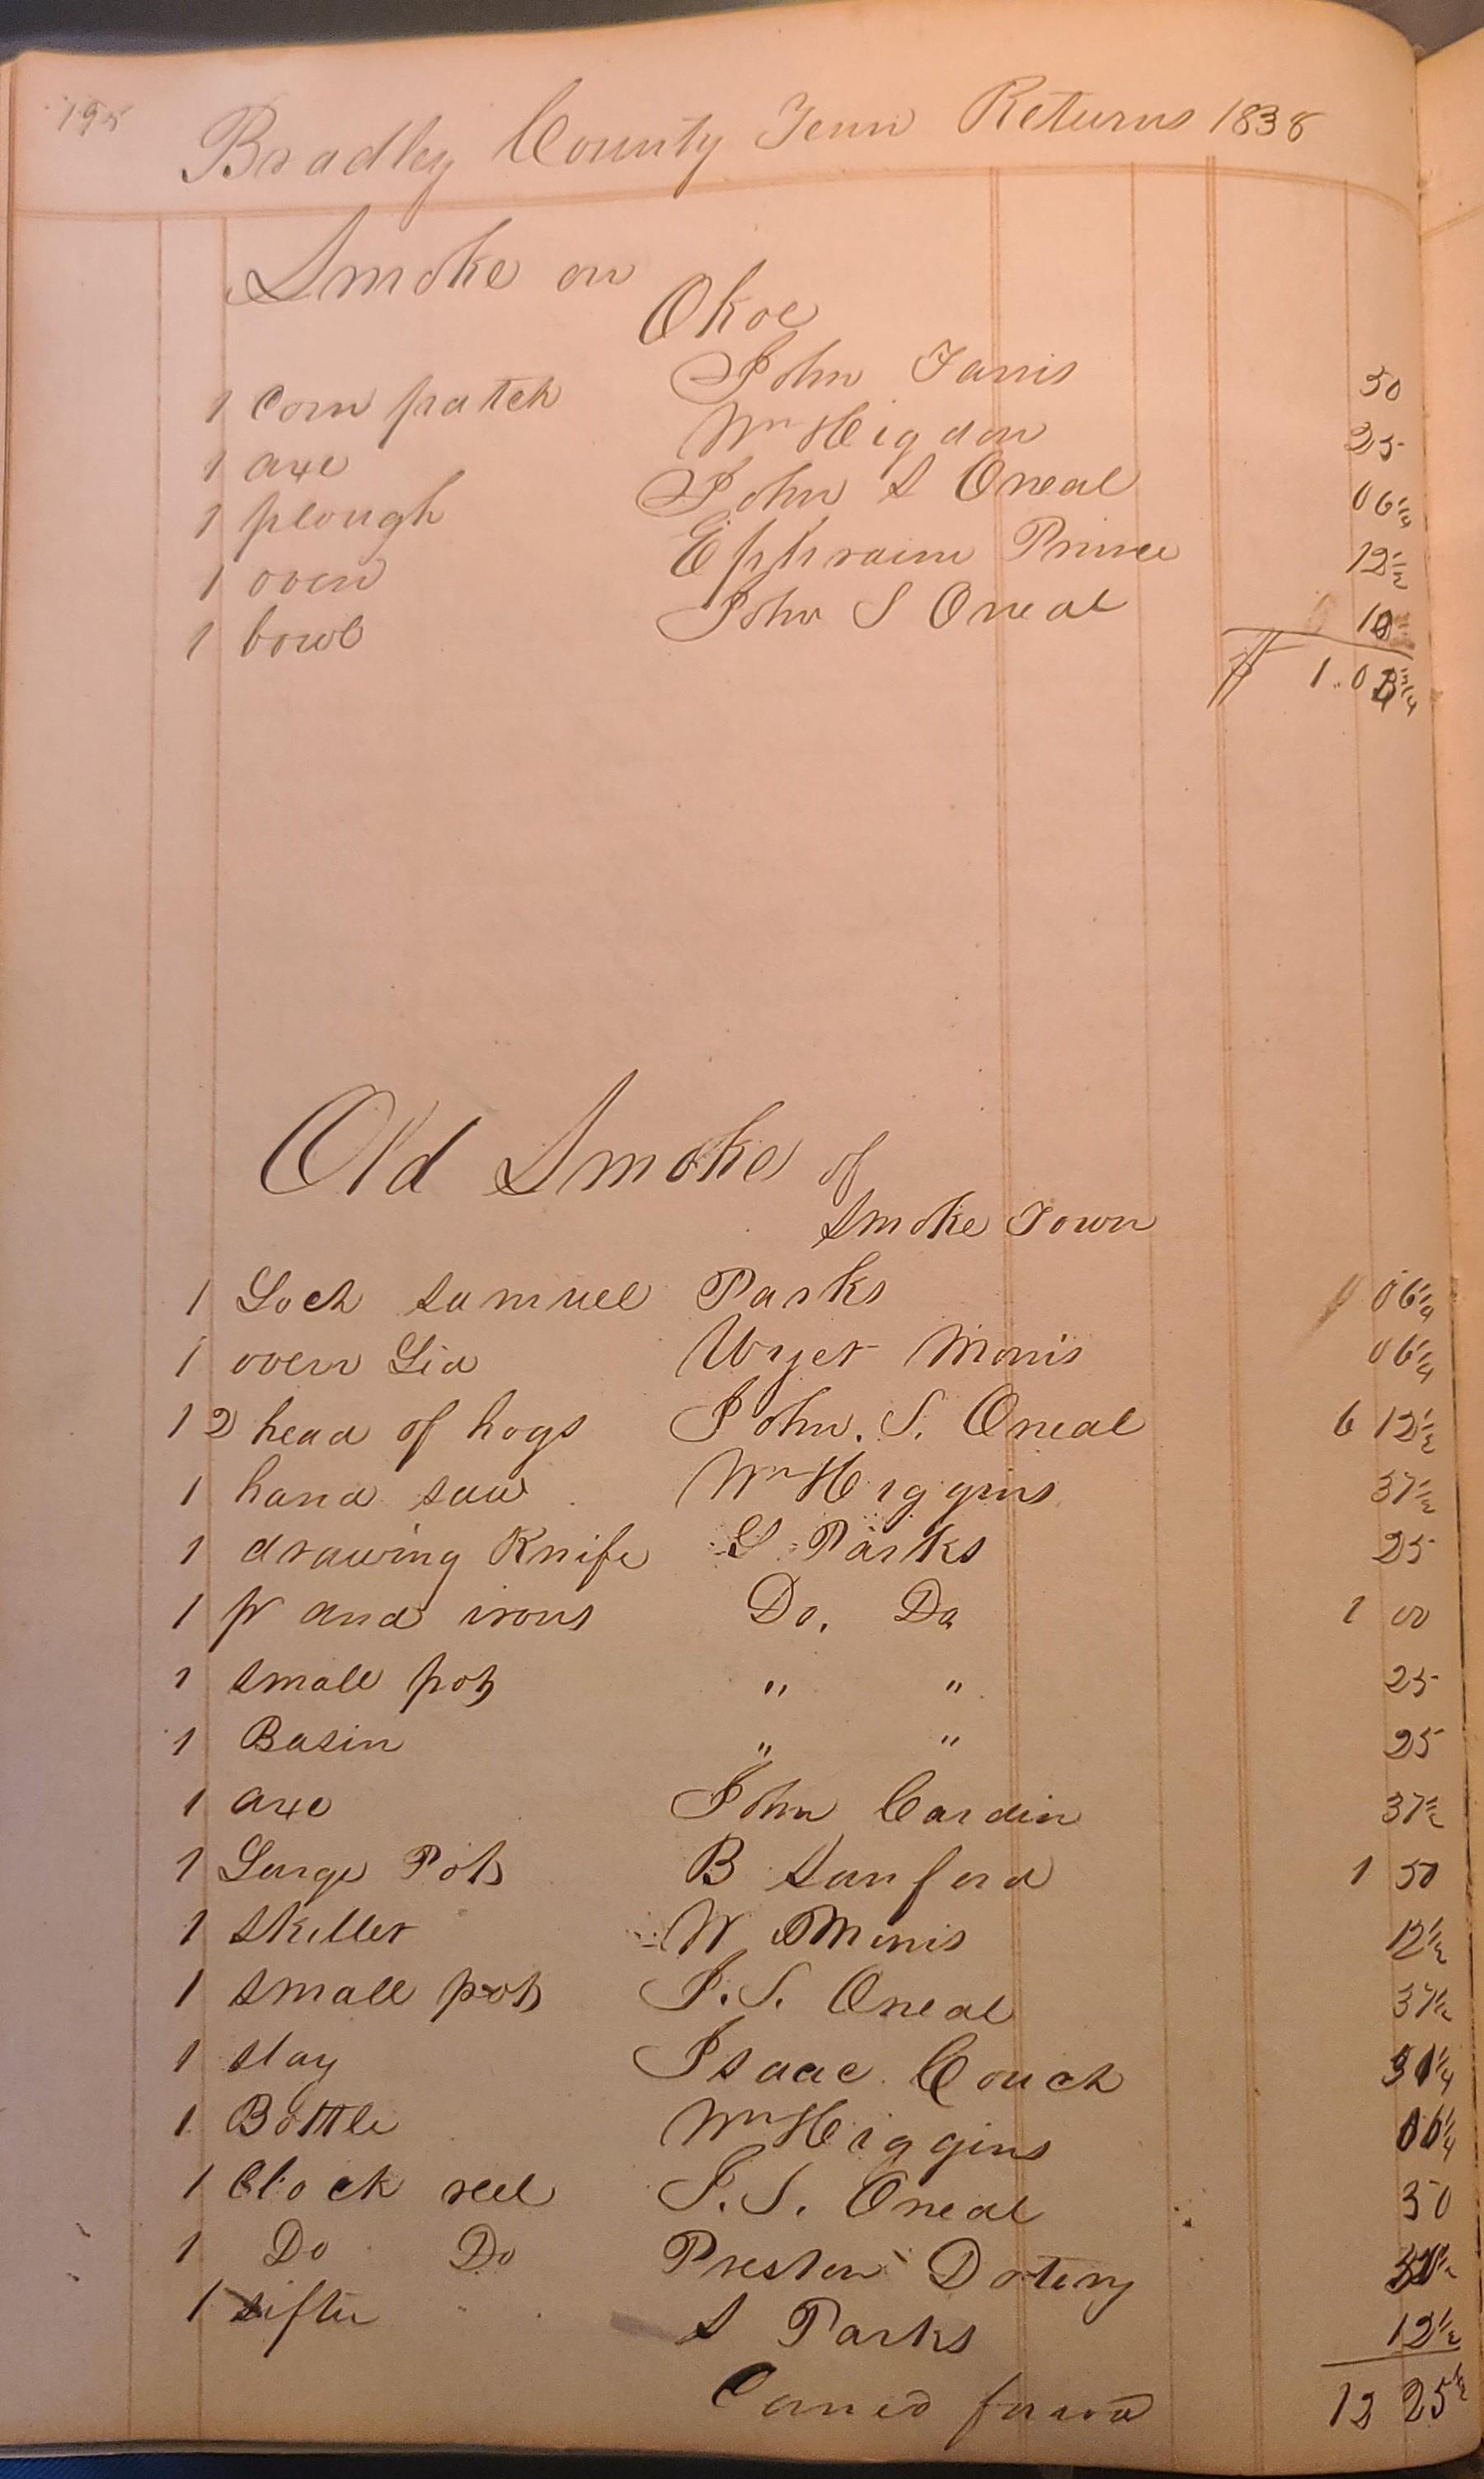 195
Bradley County Tenn Returns 1838
Smoke on
Okoe
1 Corn patch John Farris 50
1 axe Wm Higdon 25
1 plough John S Oneal 06 1/4
1 oven Ephraim Prince 12 1/2
1 bowl John S Oneal 10
$ 1.03 3/4
Old Smoke of
Smoke Town
1 Loch Samuel Parks 06 1/4
1 oven Lid Wyer Morris 06 1/4
12 head of hogs John. S. Oneal 6 12 1/2
1 hand saw Wm Higgins 37 1/2
1 drawing Knife S Parks 25
1 pr and irons Do. Do 1 00
1 small pot " " 25
1 Basin " " 25
1 axe John Cardin 37 1/2
1 Large Pot B Sanford 1 50
1 skillet W Morris 12 1/2
1 small pot J. S. Oneal 37 1/2
1 slay Isaac Couch 31 1/4
1 Bottle Wm Higgins 06 1/4
1 Clock reel J. S. Oneal 50
1 Do Do Preston Doteny
1 sifter S Parks 12 1/2
Carried forwd 12 25 1/2